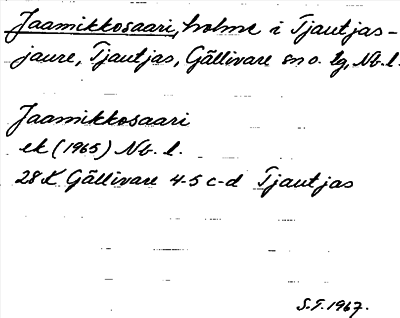 Jaamikkosaari, holme i Tjautjas-
jaure, Tjautjas, Gällivare sn o. lg, Nb. l.
Jaamikkosaari
ek (1965) Nb. l.
28 K Gällivare 4-5 c-d Tjautjas
S.F. 1967.